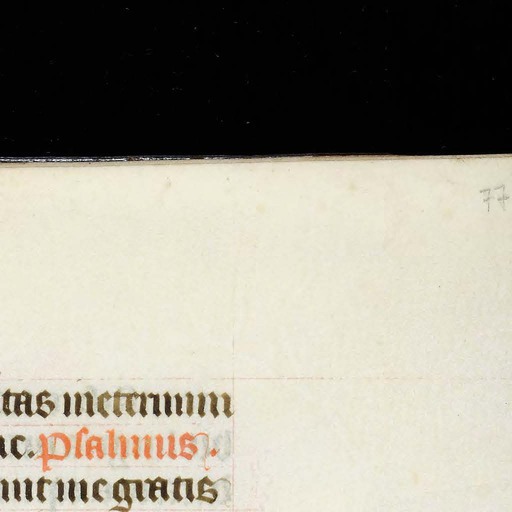 77
tas in eternum
ac. Psalmus.
unt me gratis